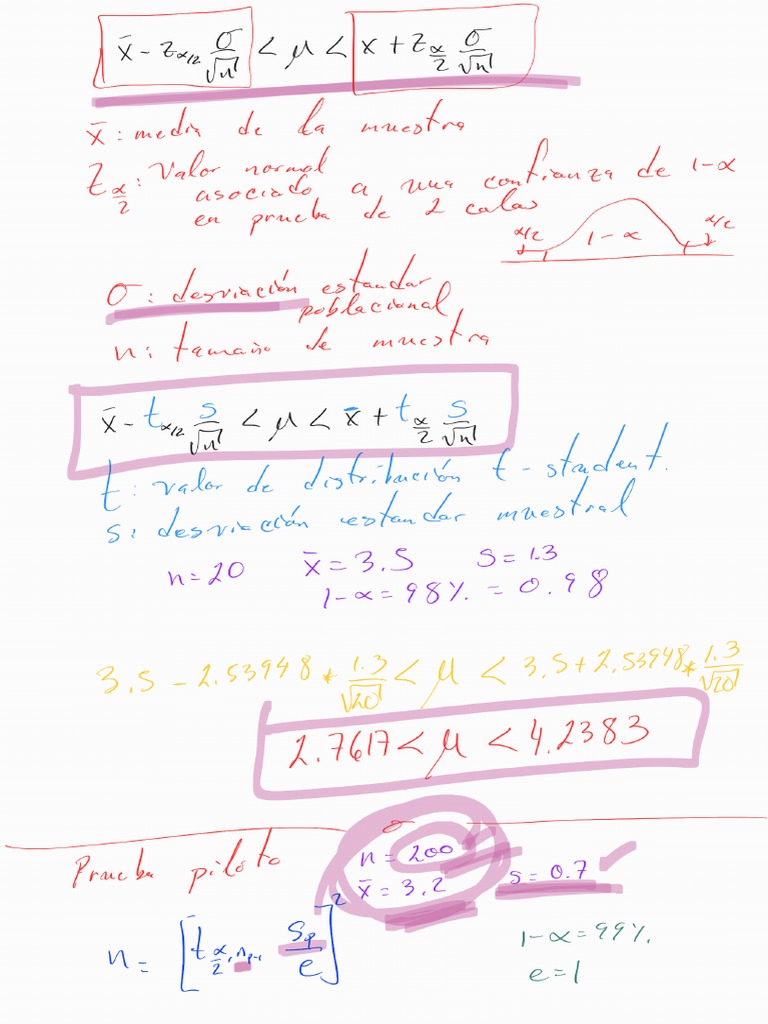 x̄ - z α/2 σ/√n < μ < x + z α/2 σ/√n
x̄: media de la muestra
Z α/2: Valor normal
asociado a una confianza de 1-α
en prueba de 2 colas
α/2 1-α α/2
σ: desviación estandar
poblacional
n: tamaño de muestra
x̄ - t α/2 s/√n < μ < x̄ + t α/2 s/√n
t: valor de distribución t-student.
s: desviación estandar muestral
n=20 x̄=3.5 s=1.3
1-α=98%.=0.98
3.5-2.53948*1.3/√20 < μ < 3.5+2.53948*1.3/√20
2.7617<μ<4.2383
σ
Prueba piloto n=200
x̄=3.2 s=0.7
n= [t α/2, np-1 sp/e]² 1-α=99%.
e=1